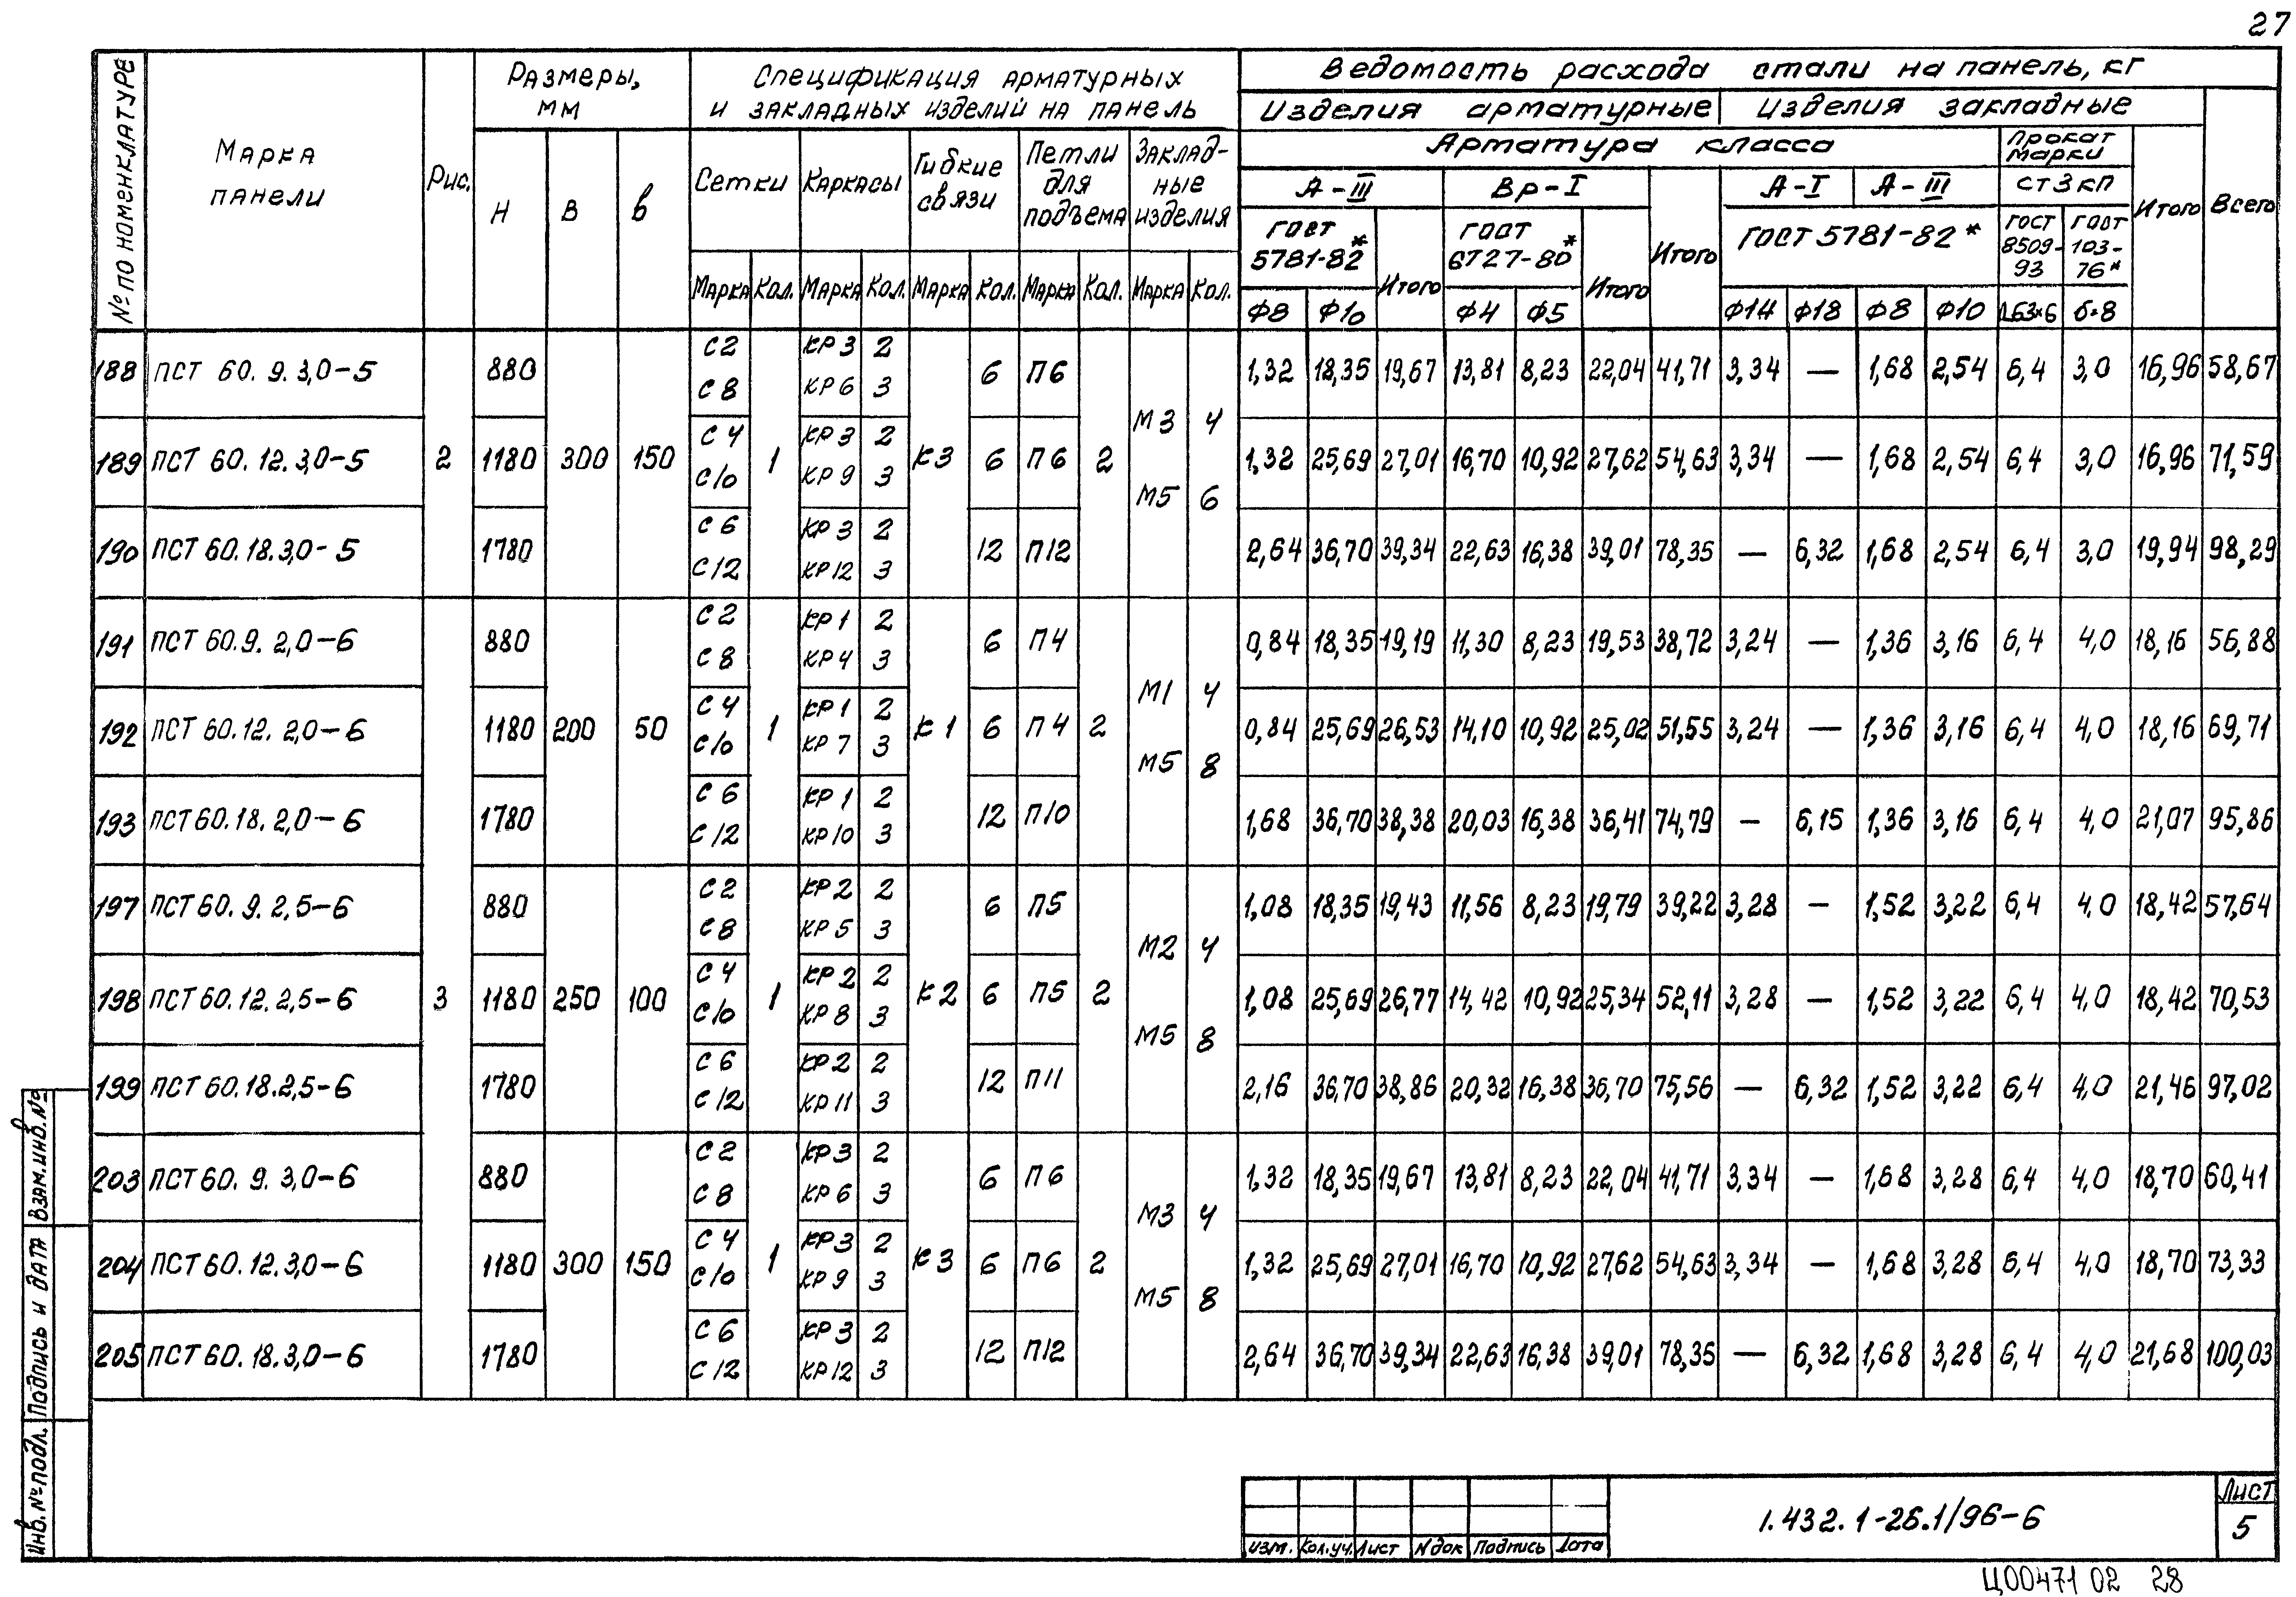 27
№ по номенклатуре
Марка панели
Рис.
Размеры, мм
Спецификация арматурных и закладных изделий на панель
Ведомость расхода стали на панель, кг
Изделия арматурные
Изделия закладные
Всего
H
В
в
Сетки
Каркасы
Гибкие связи
Петли для подъема
Закладные изделия
Арматура класса
Прокат марки
Ст3кп
А-III
Вр-I
Итого
А-I
А-III
Итого
ГОСТ 5781-82*
Итого
ГОСТ 6727-80*
Итого
ГОСТ 5781-82*
ГОСТ 8509-93
ГОСТ 103-76*
Марка Кол. Марка Кол. Марка Кол. Марка Кол. Марка Кол.
Ф8 Ф10 Ф4 Ф5 Ф14 Ф18 Ф8 Ф10 L63×6 δ=8
188 ПСТ 60.9.3,0-5 880 С2 С8 КР3 2 КР6 3 6 П6 1,32 18,35 19,67 13,81 8,23 22,04 41,71 3,34 — 1,68 2,54 6,4 3,0 16,96 58,67
М3 4
189 ПСТ 60.12.3,0-5 2 1180 300 150 С4 С10 1 КР3 2 КР9 3 К3 6 П6 2 1,32 25,69 27,01 16,70 10,92 27,62 54,63 3,34 — 1,68 2,54 6,4 3,0 16,96 71,59
М5 6
190 ПСТ 60.18.3,0-5 1780 С6 С12 КР3 2 КР12 3 12 П12 2,64 36,70 39,34 22,63 16,38 39,01 78,35 — 6,32 1,68 2,54 6,4 3,0 19,94 98,29
191 ПСТ 60.9.2,0-6 880 С2 С8 КР1 2 КР4 3 6 П4 0,84 18,35 19,19 11,30 8,23 19,53 38,72 3,24 — 1,36 3,16 6,4 4,0 18,16 56,88
М1 4
192 ПСТ 60.12.2,0-6 1180 200 50 С4 С10 1 КР1 2 КР7 3 К1 6 П4 2 0,84 25,69 26,53 14,10 10,92 25,02 51,55 3,24 — 1,36 3,16 6,4 4,0 18,16 69,71
М5 8
193 ПСТ 60.18.2,0-6 1780 С6 С12 КР1 2 КР10 3 12 П10 1,68 36,70 38,38 20,03 16,38 36,41 74,79 — 6,15 1,36 3,16 6,4 4,0 21,07 95,86
197 ПСТ 60.9.2,5-6 880 С2 С8 КР2 2 КР5 3 6 П5 1,08 18,35 19,43 11,56 8,23 19,79 39,22 3,28 — 1,52 3,22 6,4 4,0 18,42 57,64
М2 4
198 ПСТ 60.12.2,5-6 3 1180 250 100 С4 С10 1 КР2 2 КР8 3 К2 6 П5 2 1,08 25,69 26,77 14,42 10,92 25,34 52,11 3,28 — 1,52 3,22 6,4 4,0 18,42 70,53
М5 8
199 ПСТ 60.18.2,5-6 1780 С6 С12 КР2 2 КР11 3 12 П11 2,16 36,70 38,86 20,32 16,38 36,70 75,56 — 6,32 1,52 3,22 6,4 4,0 21,46 97,02
203 ПСТ 60.9.3,0-6 880 С2 С8 КР3 2 КР6 3 6 П6 1,32 18,35 19,67 13,81 8,23 22,04 41,71 3,34 — 1,68 3,28 6,4 4,0 18,70 60,41
М3 4
204 ПСТ 60.12.3,0-6 1180 300 150 С4 С10 1 КР3 2 КР9 3 К3 6 П6 2 1,32 25,69 27,01 16,70 10,92 27,62 54,63 3,34 — 1,68 3,28 6,4 4,0 18,70 73,33
М5 8
205 ПСТ 60.18.3,0-6 1780 С6 С12 КР3 2 КР12 3 12 П12 2,64 36,70 39,34 22,63 16,38 39,01 78,35 — 6,32 1,68 3,28 6,4 4,0 21,68 100,03
Взам.инв.№
Подпись и дата
Инв.№ подл.
Изм. Кол.уч. Лист №док Подпись Дата
1.432.1-26.1/96-6
Лист
5
Ц00471 02 28